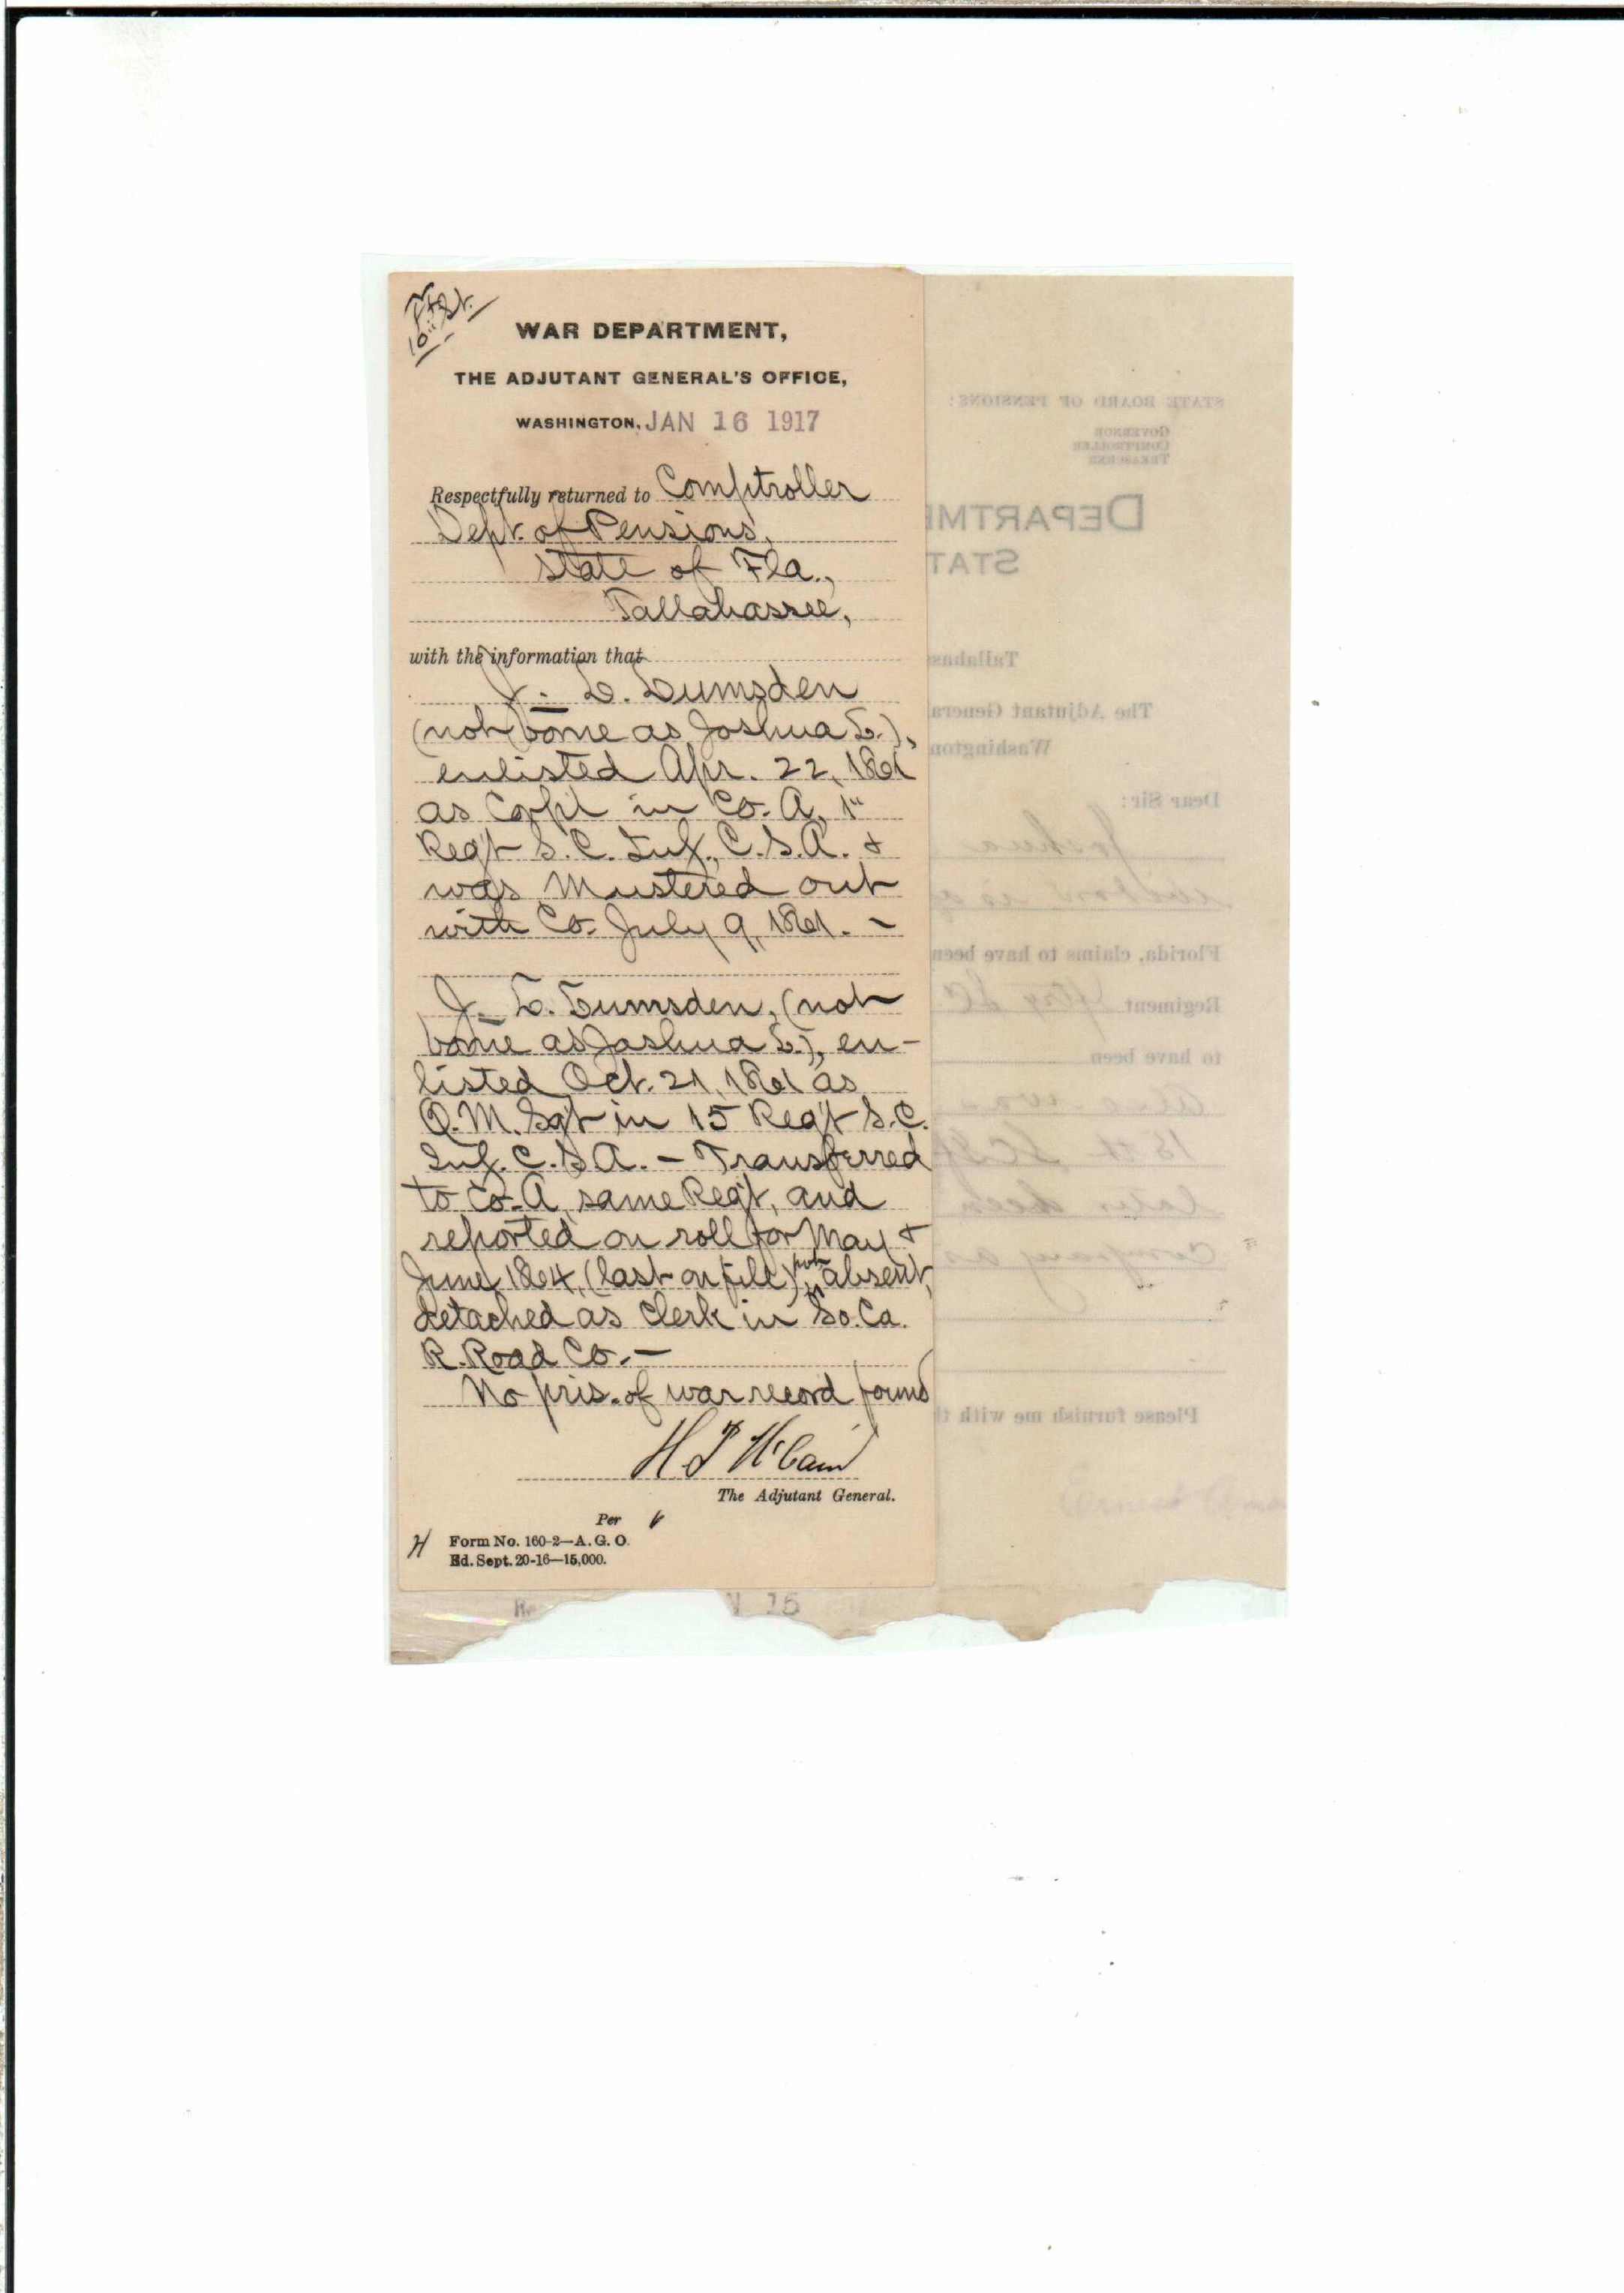 WAR DEPARTMENT,
THE ADJUTANT GENERAL'S OFFICE,
WASHINGTON, JAN 16 1917
Respectfully returned to Comptroller
Dept. of Pensions,
State of Fla.,
Tallahassee,
with the information that
J. L. Lumsden
(not borne as Joshua L.),
enlisted Apr. 22, 1861
as Corpl in Co. A, 1"
Regt S. C. Inf., C. S. A. &
was Mustered out
with Co. July 9, 1861. -
J. L. Lumsden, (not
borne as Joshua L.), en-
listed Oct. 21, 1861 as
Q. M. Sgt in 15 Regt S. C.
Inf. C. S. A. - Transferred
to Co. A, same Regt, and
reported on roll for May &
June 1864, (last on file) absent,
detached as Clerk in So. Ca.
R. Road Co. -
No pris. of war record found
H P McCain
The Adjutant General.
Per
H Form No. 160-2—A. G. O.
Ed. Sept. 20-16—15,000.
STATE BOARD OF PENSIONS:
GOVERNOR
COMPTROLLER
TREASURER
DEPARTME
STAT
Tallahas
The Adjutant Genera
Washington
Dear Sir:
Joshua
Florida, claims to have been
Regiment
to have been
also was
15th
later
Company as
Please furnish me with th
15